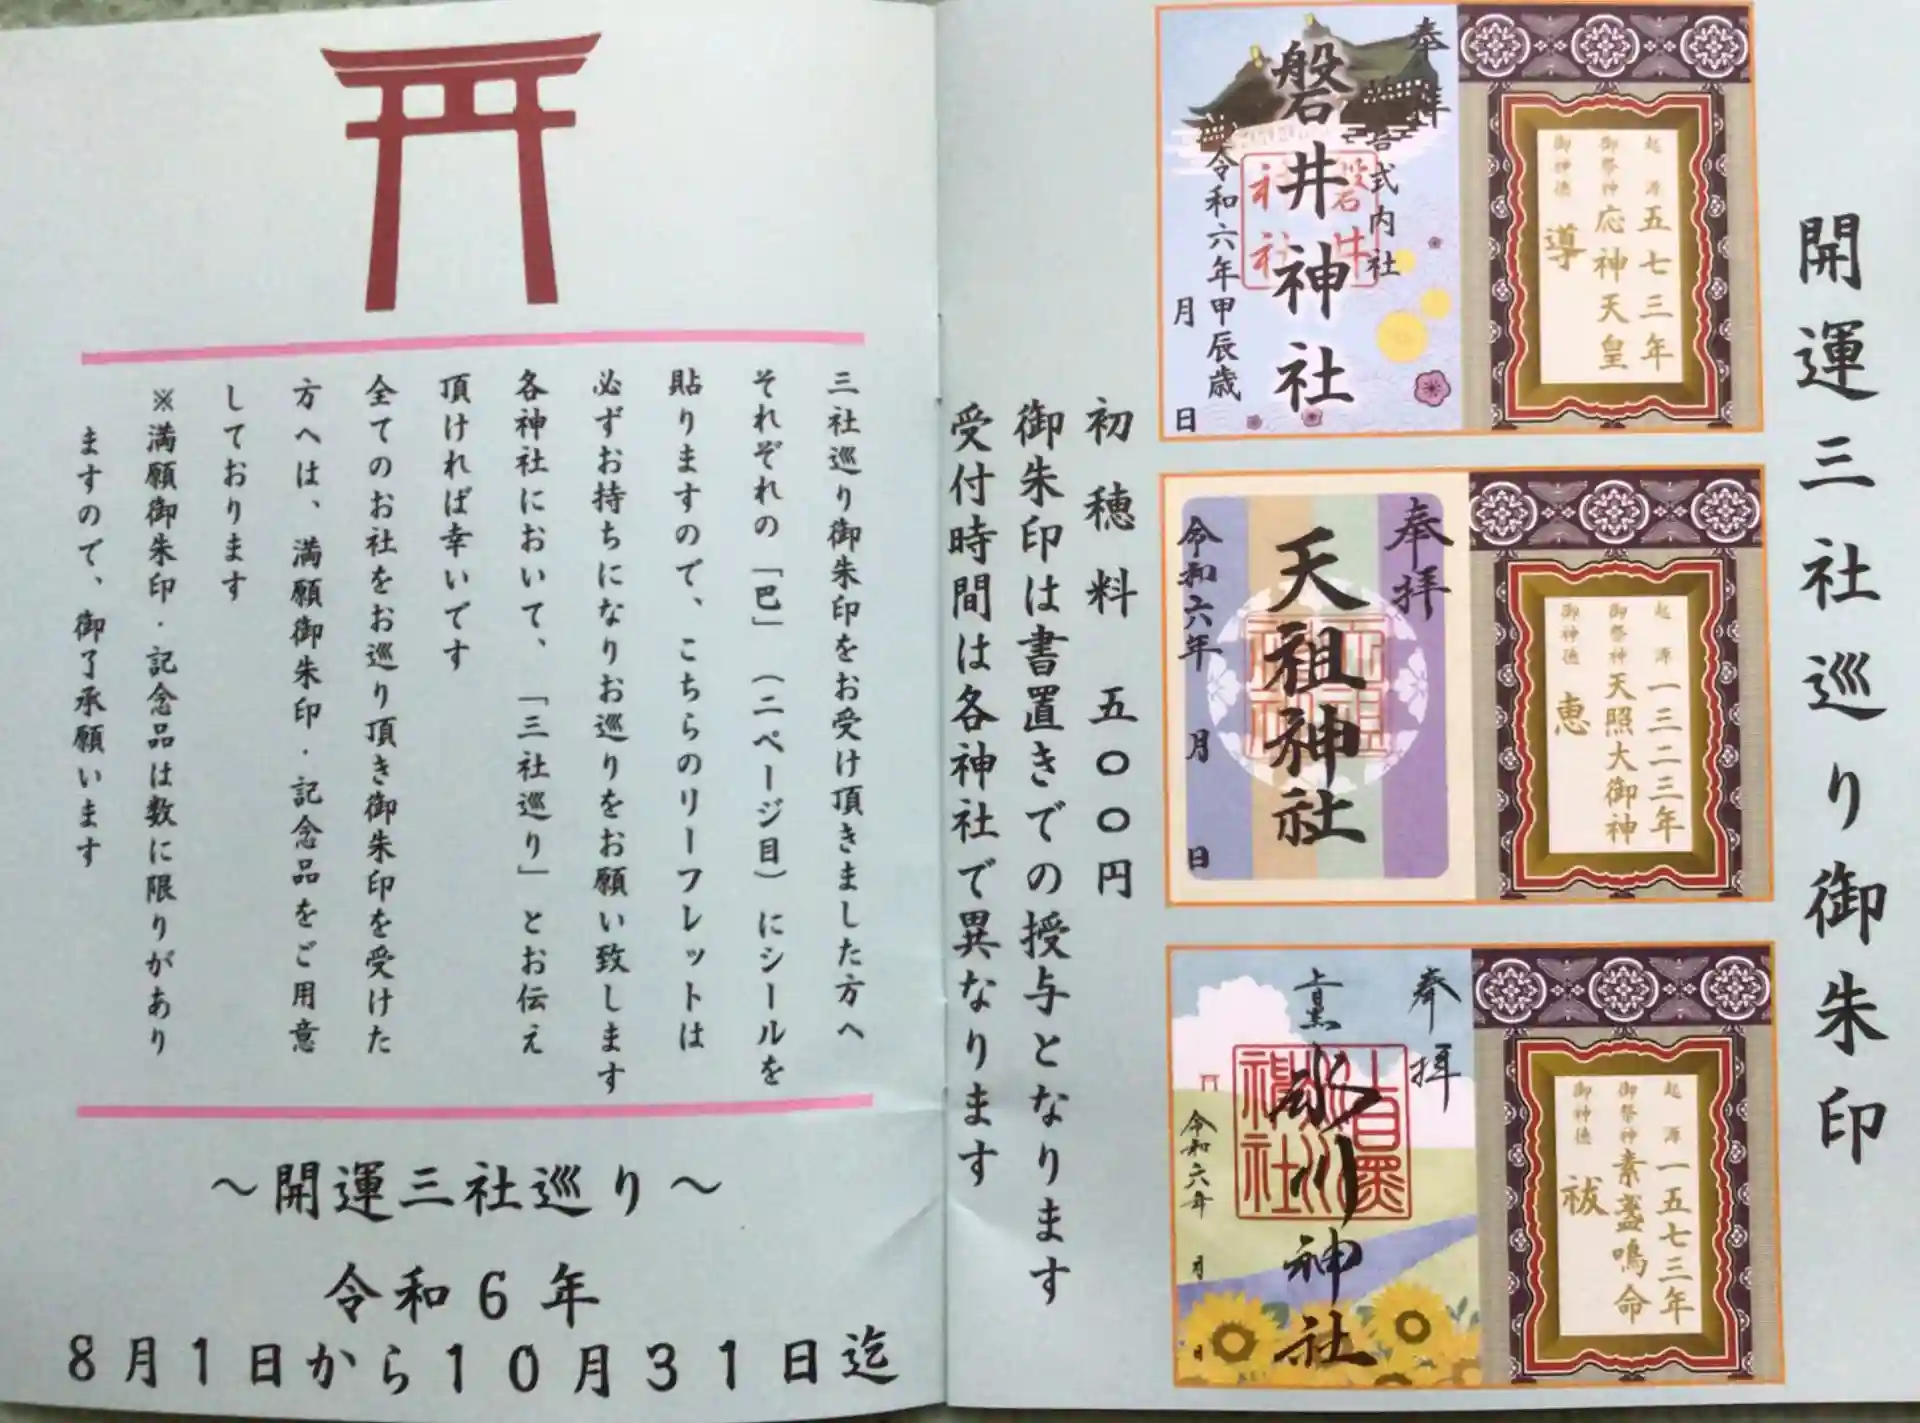 開運三社巡り御朱印
起源 五七三年
御祭神 応神天皇
御神徳 導
奉拝
式内社
磐井神社
令和六年甲辰歳
月 日
起源 一三二三年
御祭神 天照大御神
御神徳 恵
奉拝
天祖神社
令和六年 月 日
起源 一五七三年
御祭神 素盞鳴命
御神徳 祓
奉拝
氷川神社
令和六年 月 日
初穂料 五〇〇円
御朱印は書置きでの授与となります
受付時間は各神社で異なります
三社巡り御朱印をお受け頂きました方へ
それぞれの「巴」（二ページ目）にシールを
貼りますので、こちらのリーフレットは
必ずお持ちになりお巡りをお願い致します
各神社において、「三社巡り」とお伝え
頂ければ幸いです
全てのお社をお巡り頂き御朱印を受けた
方へは、満願御朱印・記念品をご用意
しております
※満願御朱印・記念品は数に限りがあり
ますので、御了承願います
～開運三社巡り～
令和6年
8月1日から10月31日迄